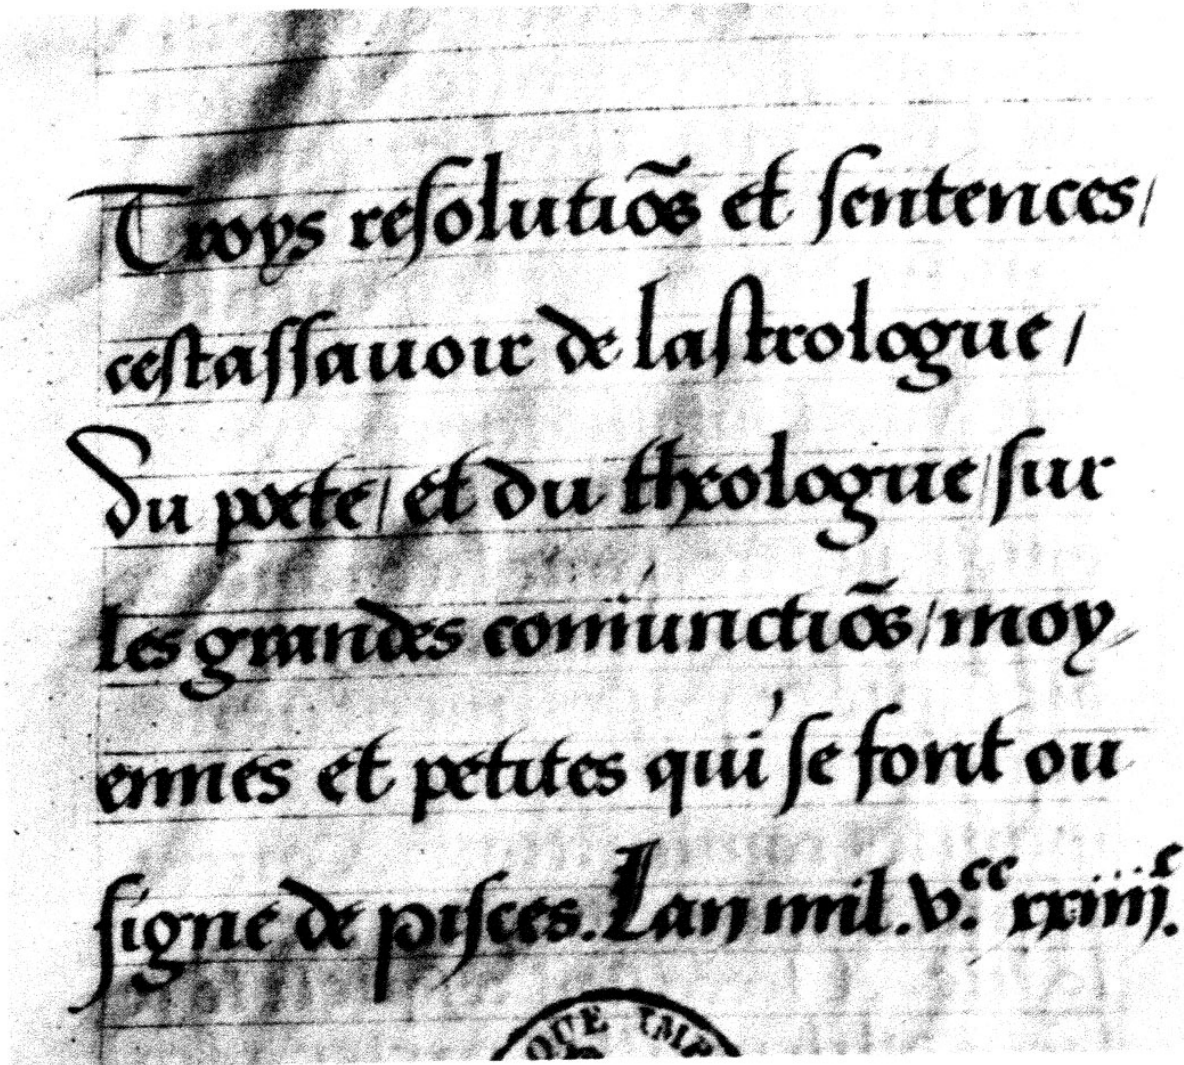 Troys resolutiõs et sentences/
cestassavoir de lastrologue /
du poete/ et du theologue/ sur
les grandes coniunctiõs/ moy
ennes et petites qui se font ou
signe de pisces. Lan mil.vͨͨ. xxiiijͤ.
QUE IMP